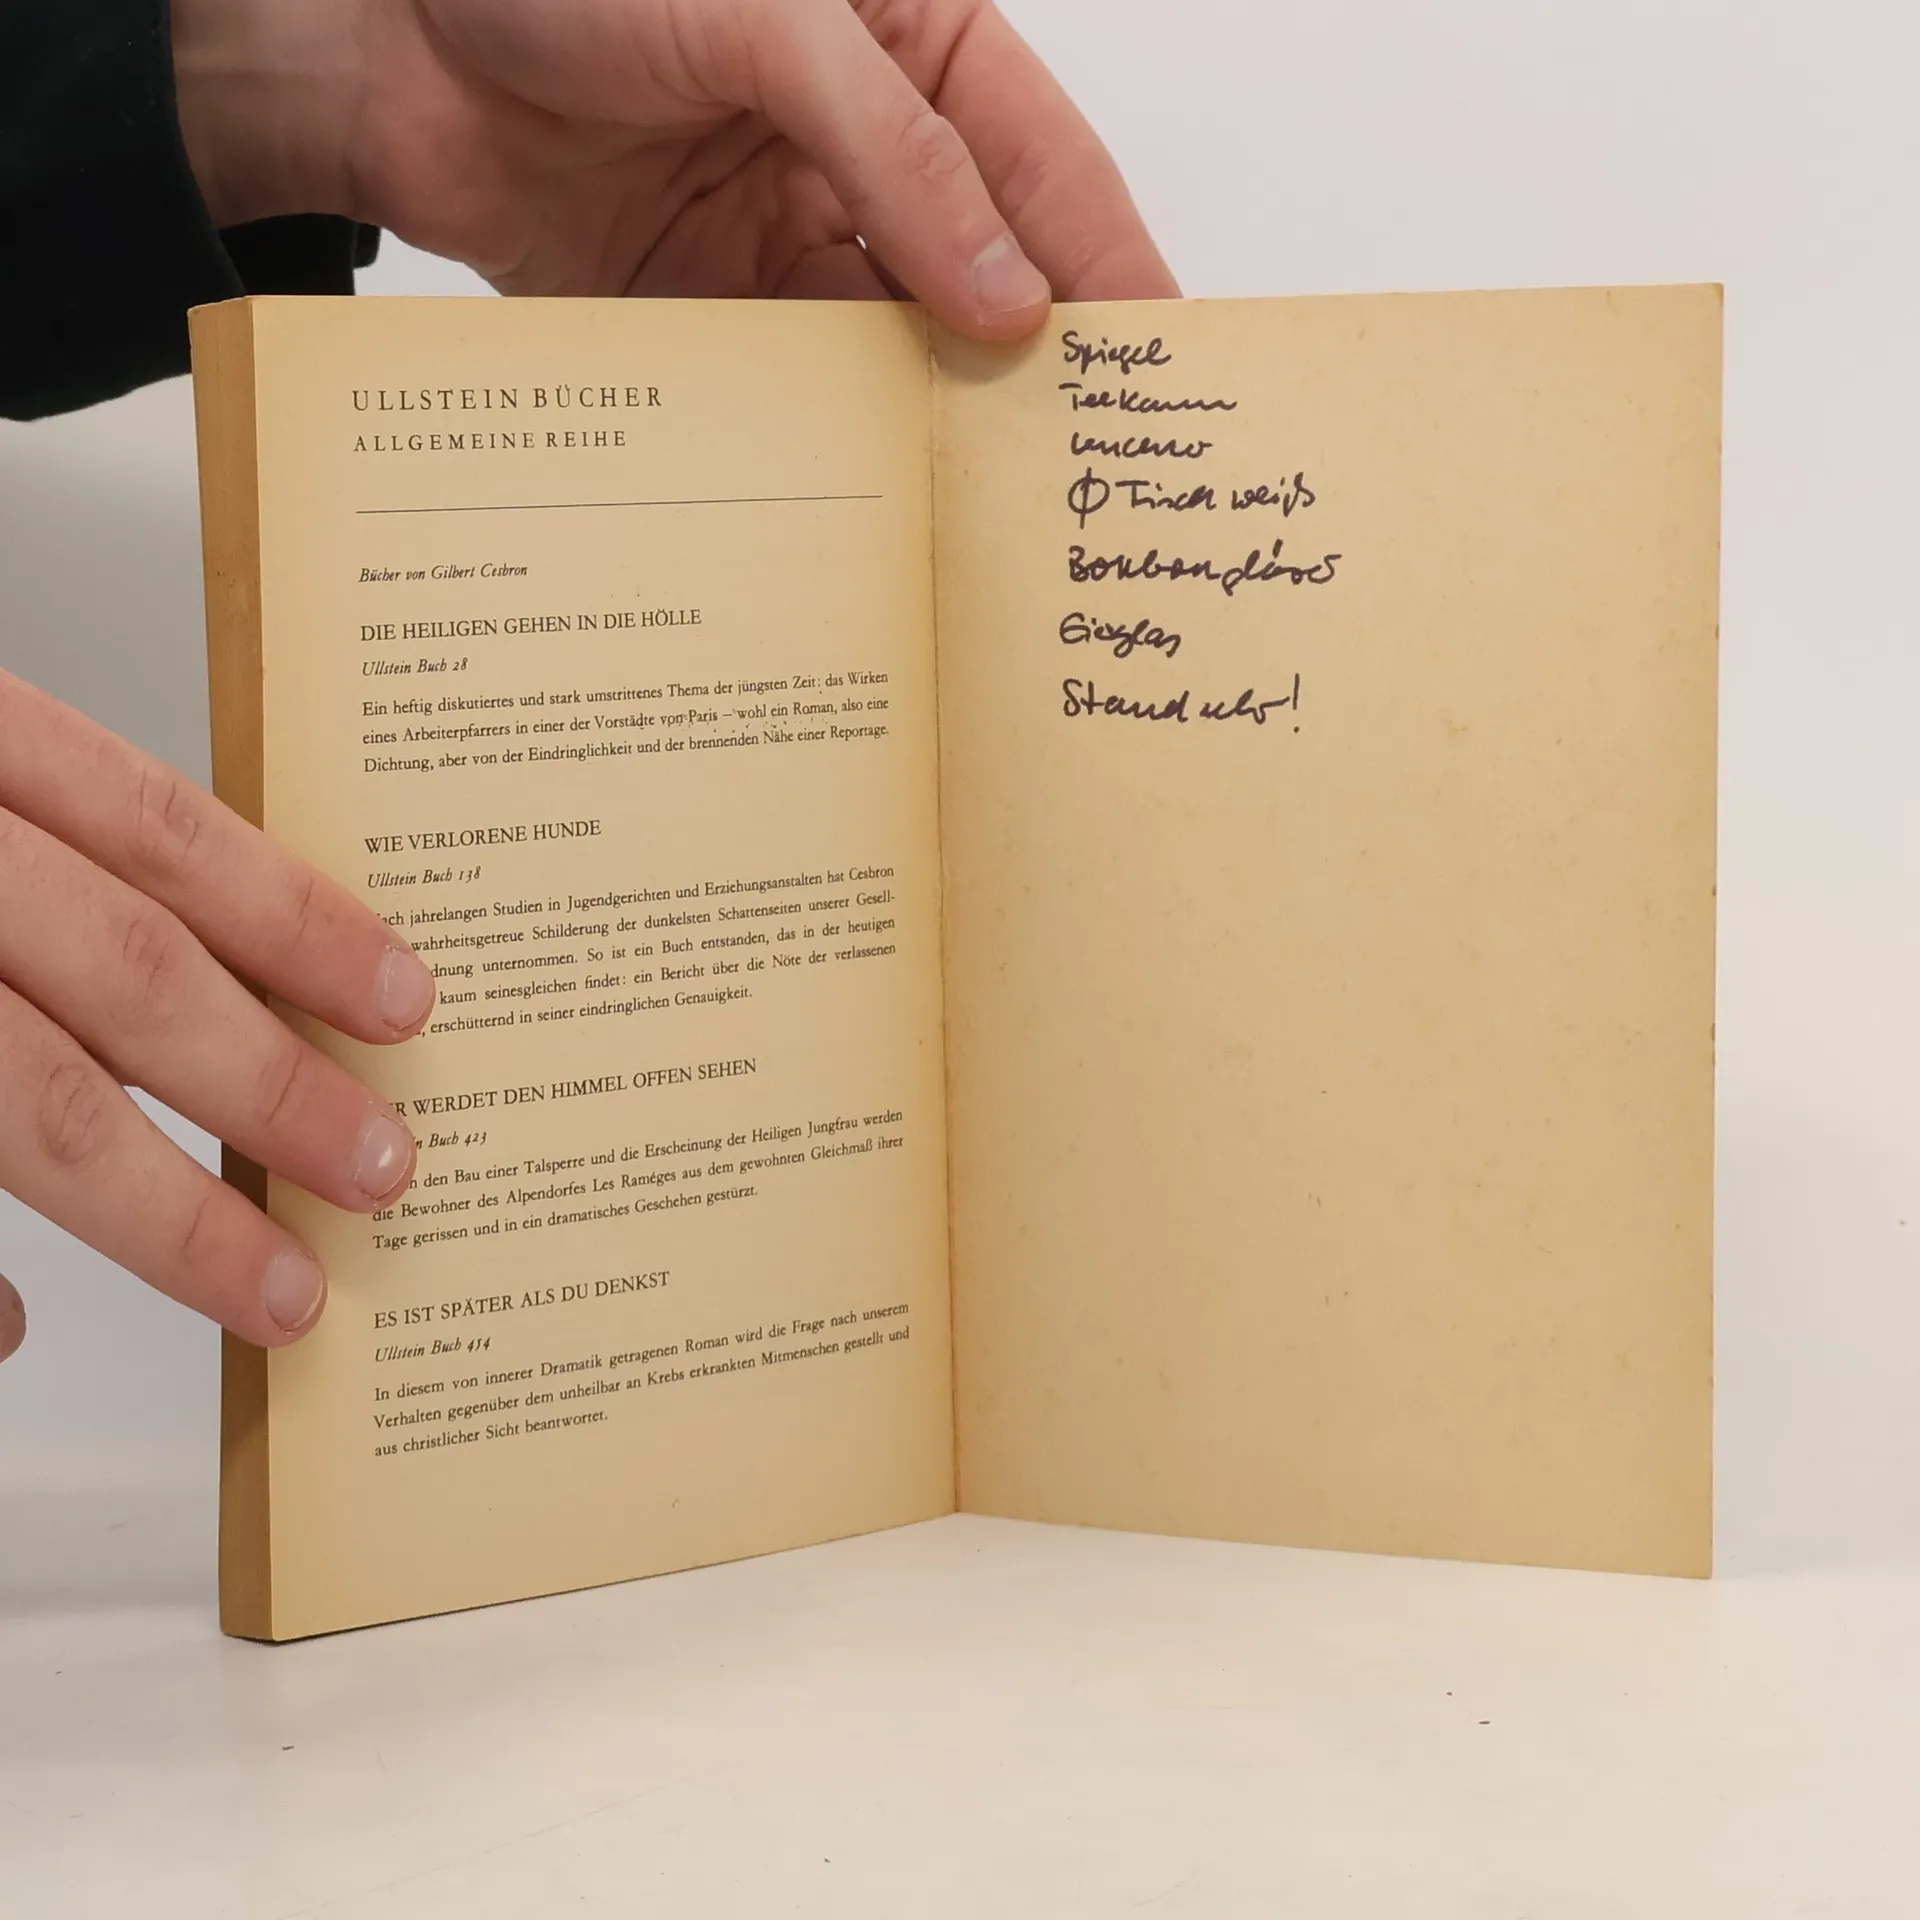 ULLSTEIN BÜCHER
ALLGEMEINE REIHE
Bücher von Gilbert Cesbron
DIE HEILIGEN GEHEN IN DIE HÖLLE
Ullstein Buch 28
Ein heftig diskutiertes und stark umstrittenes Thema der jüngsten Zeit: das Wirken
eines Arbeiterpfarrers in einer der Vorstädte von Paris – wohl ein Roman, also eine
Dichtung, aber von der Eindringlichkeit und der brennenden Nähe einer Reportage.
WIE VERLORENE HUNDE
Ullstein Buch 138
ach jahrelangen Studien in Jugendgerichten und Erziehungsanstalten hat Cesbron
wahrheitsgetreue Schilderung der dunkelsten Schattenseiten unserer Gesell-
dnung unternommen. So ist ein Buch entstanden, das in der heutigen
kaum seinesgleichen findet: ein Bericht über die Nöte der verlassenen
, erschütternd in seiner eindringlichen Genauigkeit.
R WERDET DEN HIMMEL OFFEN SEHEN
n Buch 423
n den Bau einer Talsperre und die Erscheinung der Heiligen Jungfrau werden
die Bewohner des Alpendorfes Les Raméges aus dem gewohnten Gleichmaß ihrer
Tage gerissen und in ein dramatisches Geschehen gestürzt.
ES IST SPÄTER ALS DU DENKST
Ullstein Buch 454
In diesem von innerer Dramatik getragenen Roman wird die Frage nach unserem
Verhalten gegenüber dem unheilbar an Krebs erkrankten Mitmenschen gestellt und
aus christlicher Sicht beantwortet.
Spiegel
Teekann
Tisch weiß
Bonbongläser
Eieglas
Standuhr!